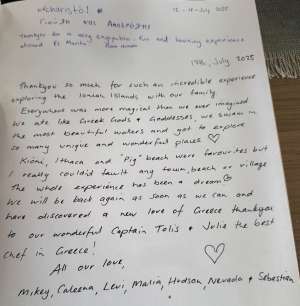 efcharistó!
12 - 19 July 2025
Thankyou to a very enjoyable, fun and learning experience
aboard
19th, July 2025
Thankyou so much for such an incredible experience
exploring the Ionian Islands with our family.
Everywhere was more magical than we ever imagined
We ate like Greek Gods & Goddesses, we swam in
the most beautiful waters and got to explore
so many unique and wonderful places ♡
Kioni, Ithaca and "Pig" beach were favourites but
I really couldn't fault any town, beach or village
The whole experience has been a dream
We will be back again as soon as we can and
have discovered a new love of Greece thankyou
to our wonderful Captain Tolis & Julie the best
chef in Greece!
All our love, ♡
Mikey, Caleena, Levi, Malia, Hudson, Nevada & Sebastian